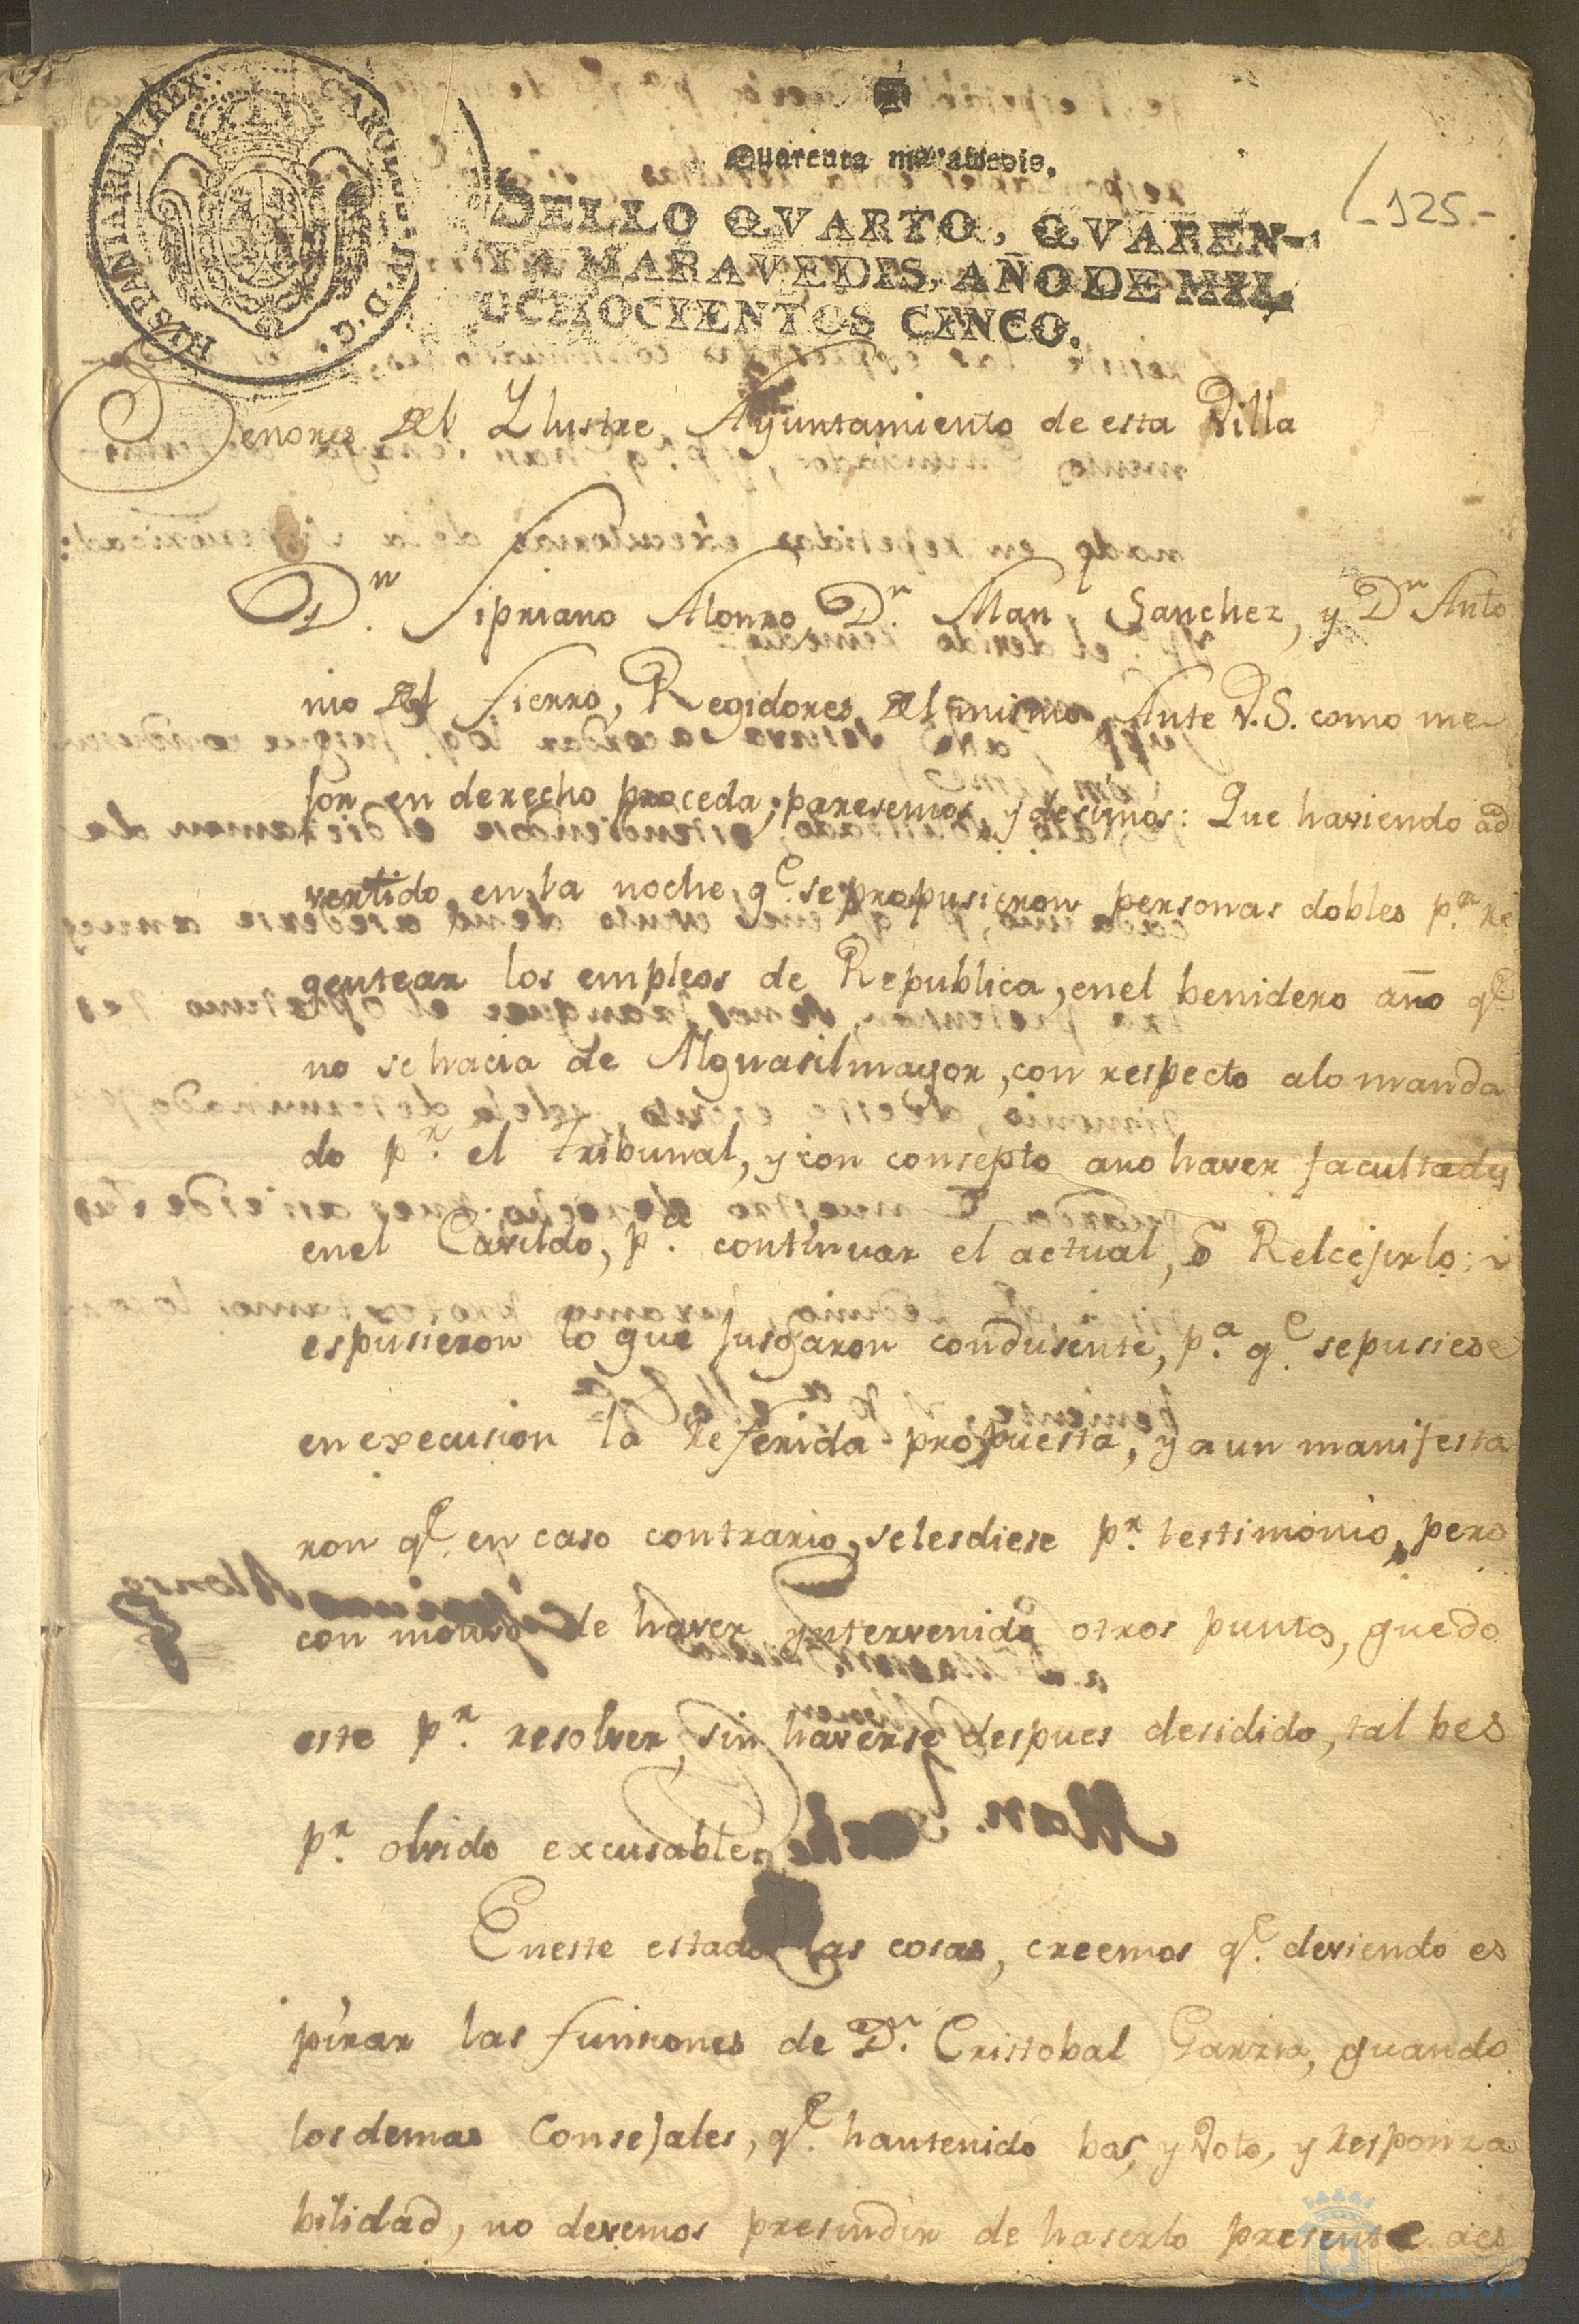 HISPANIARUM REX. CAROL. IV. D. G.
Quarenta maravedis.
SELLO QVARTO, QVAREN-
TA MARAVEDIS, AÑO DE MIL
OCHOCIENTOS CINCO.
-125-
Señores del Yllustre Ayuntamiento de esta Villa
Dn. Sipriano Alonzo Dn. Man. Sanchez, y Dn Anto
nio del fierro, Regidores del mismo Ante V.S. como me
jor en derecho proceda, paresemos y desimos: Que haviendo ad
vertido, en la noche qe. se propusieron personas dobles pa. re
gentear los empleos de Republica, enel benidero año qe
no se hacia de Alguasilmayor, con respecto alo manda
do pr. el tribunal, y con consepto ano haver facultades
enel Cavildo, pa. continuar el actual, ó Relcejirlo;
espusieron lo que Jusgaron condusente, pa. qe. sepusiese
en execusion la Referida propuesta, y aun manifesta
ron qe. en caso contrario, selesdiese pr. testimonio, pero
con motivo de haver yntervenido otros puntos, quedo
este pr. resolver, sin haverse despues desidido, tal bes
pr. olvido excusable.
Eneste estado las cosas, creemos qe. deviendo es
pirar las funsiones de Dn. Cristobal Garzia, quando
losdemas Consejales, qe. hantenido bos, y Voto, y Responza
bilidad, no devemos presindir de haserlo presente
Ayuntamiento de
HUELVA